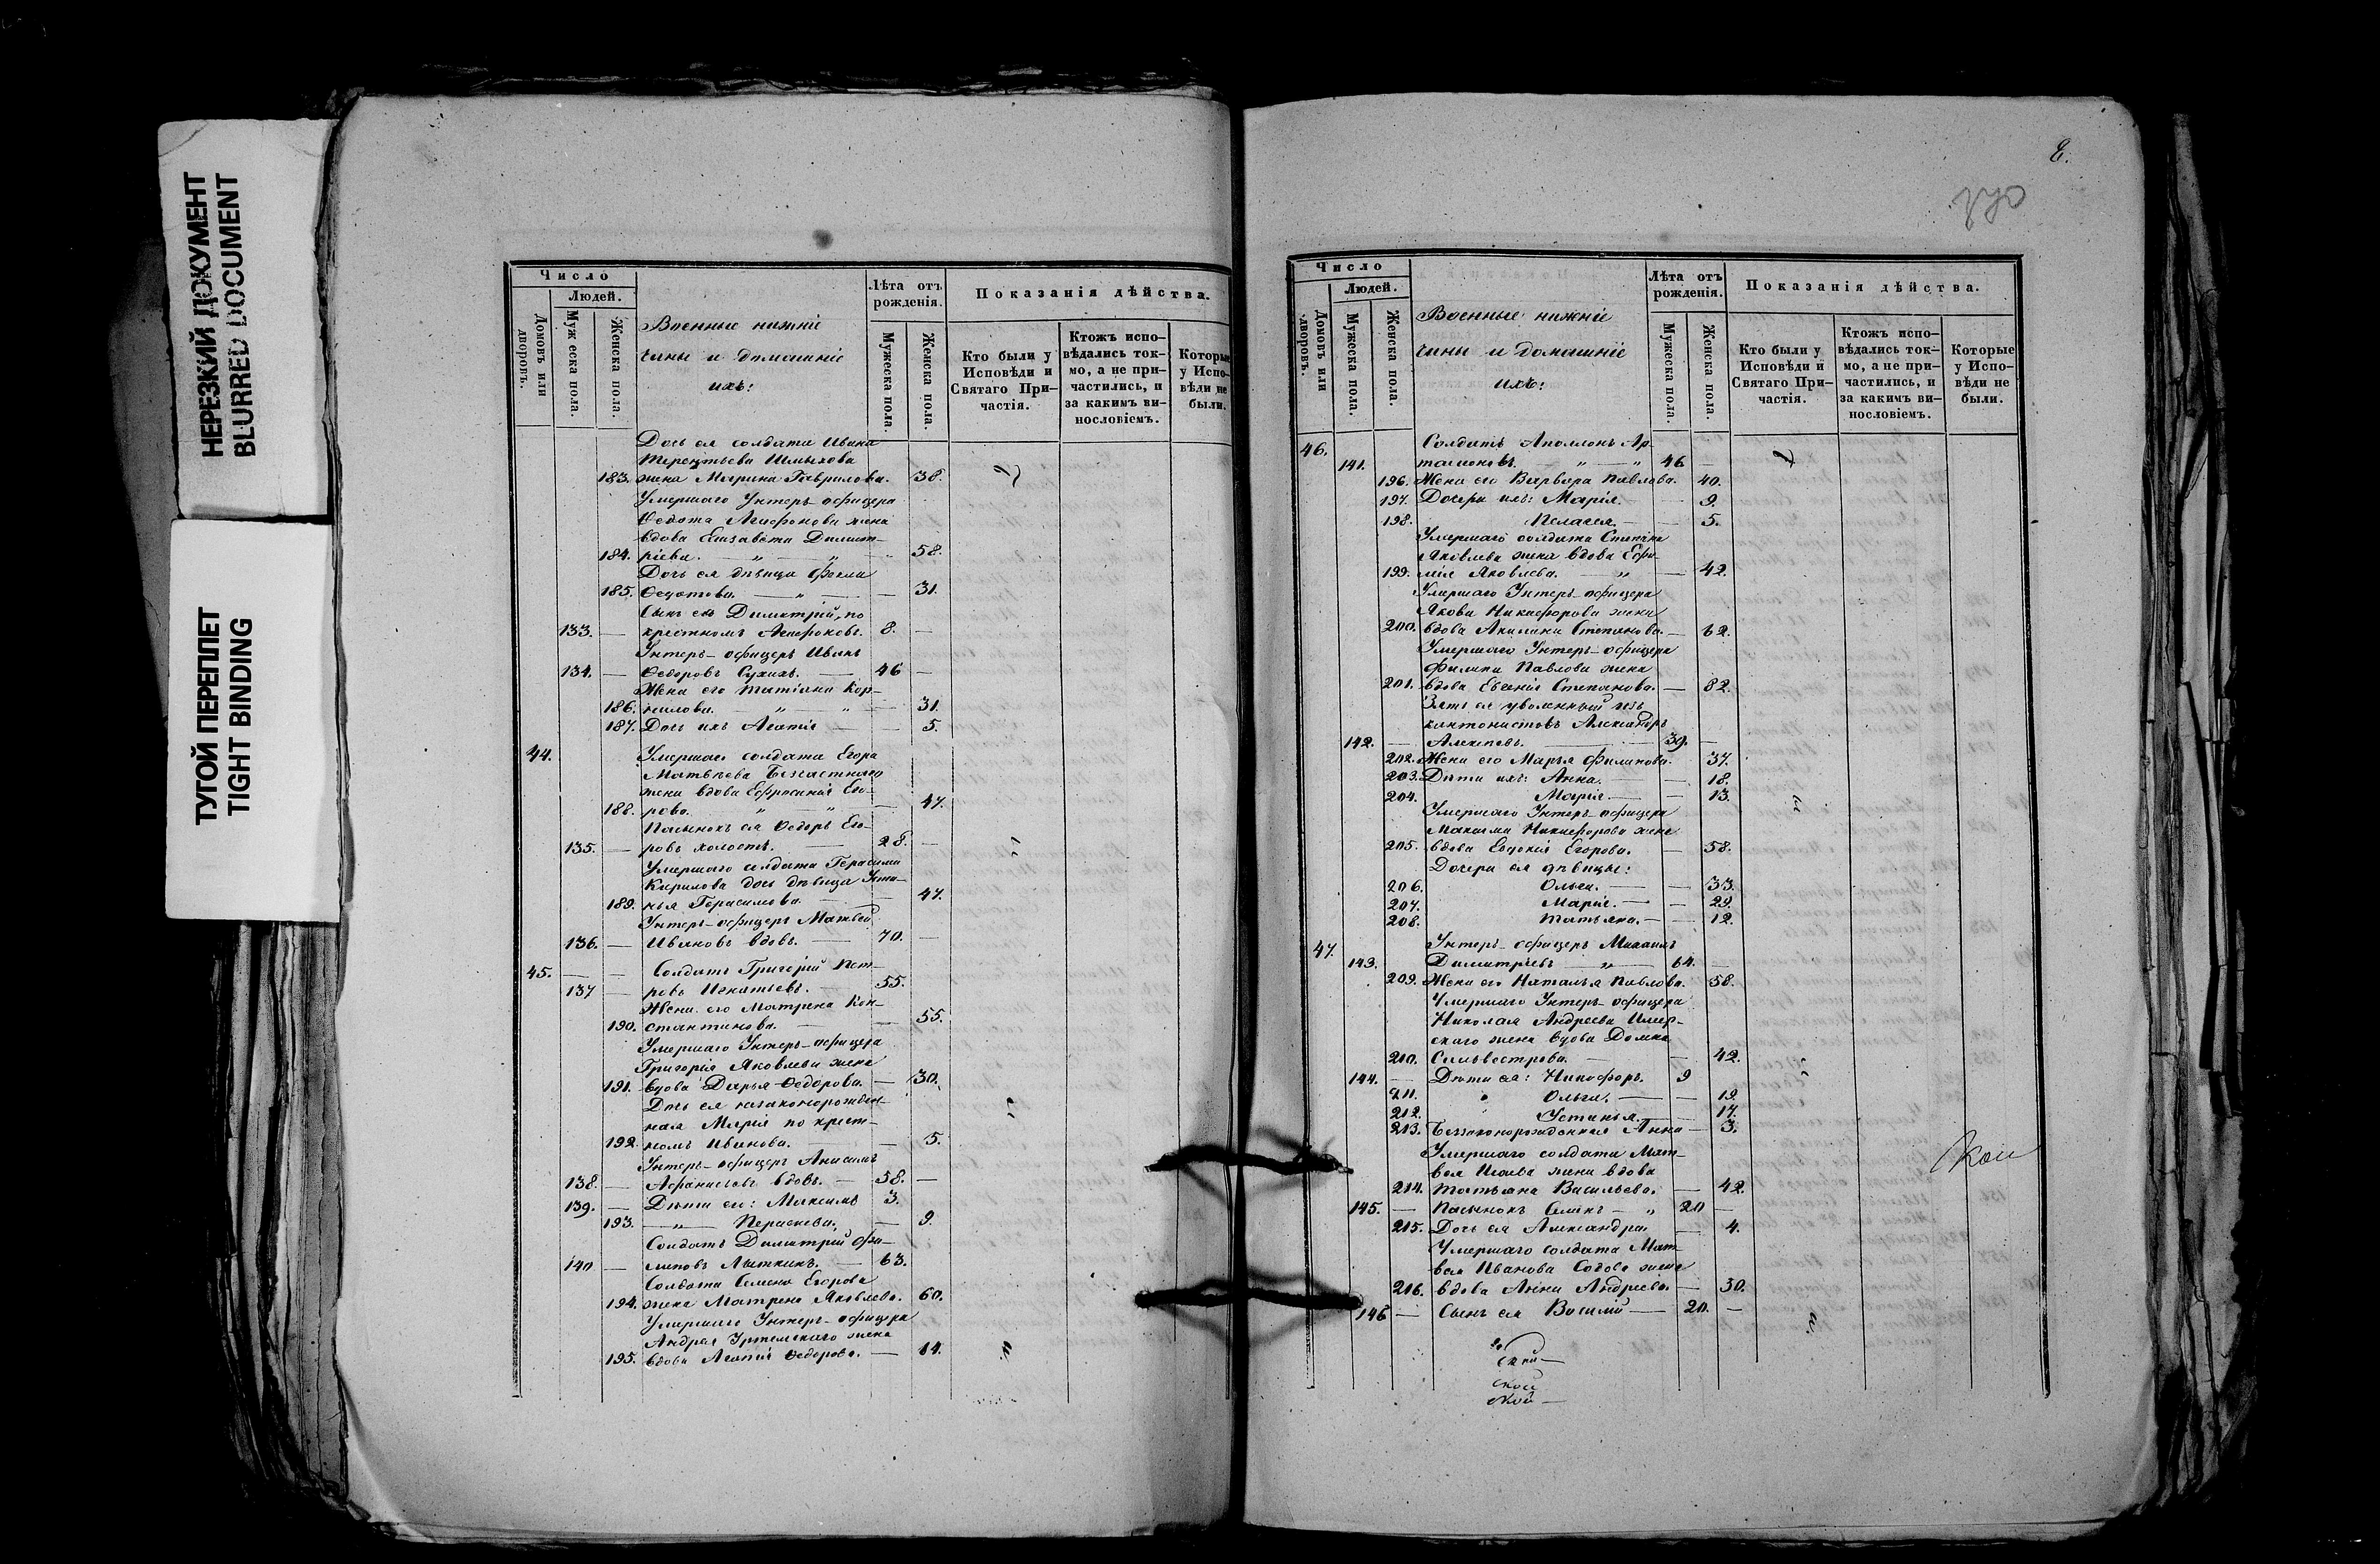 НЕРЕЗКИЙ ДОКУМЕНТ
BLURRED DOCUMENT
ТУГОЙ ПЕРЕПЛЕТ
TIGHT BINDING
Число
Людей.
Домовъ или дворовъ.
Мужеска пола.
Женска пола.
Военные нижніе
чины и домашніе
ихъ:
Лѣта отъ рожденія.
Мужеска пола.
Женска пола.
Показанія дѣйства.
Кто были у Исповѣди и Святаго Причастія.
Ктожъ исповѣдались токмо, а не причастились, и за какимъ винословіемъ.
Которые у Исповѣди не были.
Дочь ея солдата Ивана
Терентьева Шмыкова
183. жена Марина Гаврилова. 38.
Умершаго Унтеръ-офицера
Ѳедота Агафонова жена
вдова Елизавета Димит-
184. ріева. — „ — „ — 58.
Дочь ея дѣвица Ѳекла
185. Ѳедотова. — „ — — 31.
Сынъ ея Димитрій, по
133. — крестномъ Агафоновъ. 8. —
Унтеръ-офицеръ Иванъ
134. — Ѳедоровъ Сухихъ. — 46 —
Жена его Татіана Кор-
186. нилова. — „ — „ — 31.
187. Дочь ихъ Агапія — — 5.
44. Умершаго солдата Егора
Матвѣева Безчастнаго
жена вдова Ефросинія Его-
188. рова. — „ — „ — 47.
Пасынокъ ея Ѳедоръ Его-
135. — ровъ холостъ. — 28. —
Умершаго солдата Герасима
Кирилова дочь дѣвица Усти-
189. нья Герасимова. — — 47.
Унтеръ-офицеръ Матвей
136. — Ивановъ вдовъ. — 70. —
45. — — Солдатъ Григорій Пет-
137 — ровъ Игнатьевъ. — 55.
Жена его Матрена Кон-
190. стантинова. — — 55.
Умершаго Унтеръ-офицера
Григорія Яковлева жена
191. вдова Дарья Ѳедорова. — 30.
Дочь ея незаконорожден-
ная Марія по крест-
192. номъ Иванова. — — 5.
Унтеръ-офицеръ Анисимъ
138. — Афанасьевъ вдовъ. — 58. —
139. — Дѣти его: Максимъ 3.
193. — „ — Параскева. — 9.
Солдатъ Димитрій Фи-
140 — липовъ Лыткинъ. — 63.
Солдата Семена Егорова
194. жена Матрена Яковлева. 60.
Умершаго Унтеръ-офицера
Андрея жена
195. вдова Агапія Ѳедорова. — 14.
8.
Число
Людей.
Домовъ или дворовъ.
Мужеска пола.
Женска пола.
Военные нижніе
чины и домашніе
ихъ:
Лѣта отъ рожденія.
Мужеска пола.
Женска пола.
Показанія дѣйства.
Кто были у Исповѣди и Святаго Причастія.
Ктожъ исповѣдались токмо, а не причастились, и за какимъ винословіемъ.
Которые у Исповѣди не были.
46. Солдатъ Аполлонъ Ар-
141. тамоновъ. — „ — „ 46 —
196. Жена его Варвара Павлова. 40.
197. Дочери ихъ: Марія. — 9.
198. Пелагея. — — 5.
Умершаго солдата Степана
Яковлева жена вдова Ефи-
199. мія Яковлева. — „ — 42.
Умершаго Унтеръ-офицера
Якова Никифорова жена
200. вдова Акилина Степанова. — 62.
Умершаго Унтеръ-офицера
Филипа Павлова жена
201. вдова Евгенія Степанова. — 82.
Зять ея уволенный изъ
кантонистовъ Александръ
142. — Алексѣевъ. — — 39. —
202. Жена его Марья Филипова. 37.
203. Дѣти ихъ: Анна. — — 18.
204. Марія — — 13.
Умершаго Унтеръ-офицера
Максима Никифорова жена
205. вдова Евдокія Егорова. — 58.
Дочери ея дѣвицы:
206. Ольга. — — 33.
207. Марія. — — 29.
208. Татьяна. — — 12.
47. Унтеръ-офицеръ Михаилъ
143. Димитріевъ — „ — 64. —
209. Жена его Наталья Павлова. 58.
Умершаго Унтеръ-офицера
Николая Андреева Имер-
скаго жена вдова Домна
210. Сильвестрова. — — 42.
144. — Дѣти ея: Никифоръ. 9
211. Ольга. — — 19.
212. Устинья. — 17.
213. Беззаконорожденная Анна — 3.
Умершаго солдата Мат-
вея Исаева жена вдова
214. Татьяна Васильева. — 42.
145. — Пасынокъ Семенъ — „ 20 —
215. Дочь ея Александра. — 4.
Умершаго солдата Мат-
вея Иванова жена
216. вдова Анна Андреева. — 30.
146 — Сынъ ея Василій — 20. —
ской
ской —